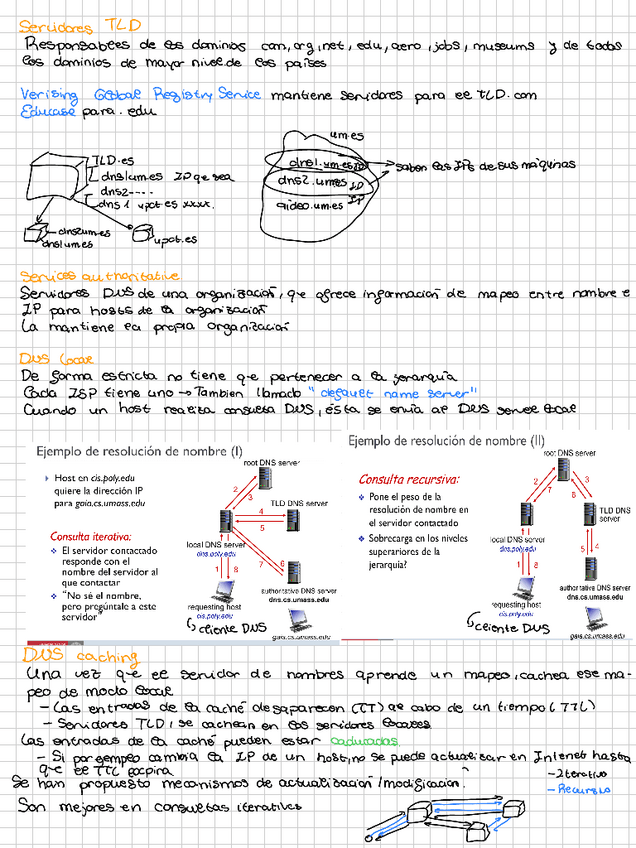 Servidores TLD
Responsables de los dominios com, org, net, edu, aero, jobs, museums y de todos
los dominios de mayor nivel de los países
Verising Global Registry Service mantiene servidores para el TLD.com
Educase para .edu
um.es
TLD.es
dns1um.es IP que sea
dns2----
dns1 upct.es xxxx.
dns2um.es
dns1um.es
upct.es
dns1.um.es IP
saben las IPs de sus máquinas
dns2.um.es IP
IP
video.um.es
Services authoritative
Servidores DNS de una organización, que ofrece información de mapeo entre nombre e
IP para hosts de la organización
La mantiene la propia organización
DNS local
De forma estricta no tiene que pertenecer a la jerarquía
Cada ISP tiene uno → Tambien llamado "default name server"
Cuando un host realiza consulta DNS, ésta se envía al DNS server local
Ejemplo de resolución de nombre (I)
Host en cis.poly.edu
quiere la dirección IP
para gaia.cs.umass.edu
Consulta iterativa:
El servidor contactado
responde con el
nombre del servidor al
que contactar
"No sé el nombre,
pero pregúntale a este
servidor"
root DNS server
2
3
TLD DNS server
4
5
local DNS server
dns.poly.edu
7
6
1
8
authoritative DNS server
dns.cs.umass.edu
requesting host
cis.poly.edu
cliente DNS
gaia.cs.umass.edu
Ejemplo de resolución de nombre (II)
Consulta recursiva:
Pone el peso de la
resolución de nombre en
el servidor contactado
Sobrecarga en los niveles
superiores de la
jerarquía?
root DNS server
2
3
7
6
TLD DNS
server
local DNS server
dns.poly.edu
5
4
1
8
authoritative DNS server
dns.cs.umass.edu
requesting host
cis.poly.edu
cliente DNS
gaia.cs.umass.edu
DNS caching
Una vez que el servidor de nombres aprende un mapeo, cachea ese ma-
peo de modo local
- Las entradas de la caché desaparecen (TT) al cabo de un tiempo (TTL)
- Servidores TLD, se cachean en los servidores locales
Las entradas de la caché pueden estar caducadas
- Si por ejemplo cambia la IP de un host, no se puede actualizar en Internet hasta
que el TTL expira
Se han propuesto mecanismos de actualización/modificación.
- Iterativo
- Recursivo
Son mejores en consultas iterativas